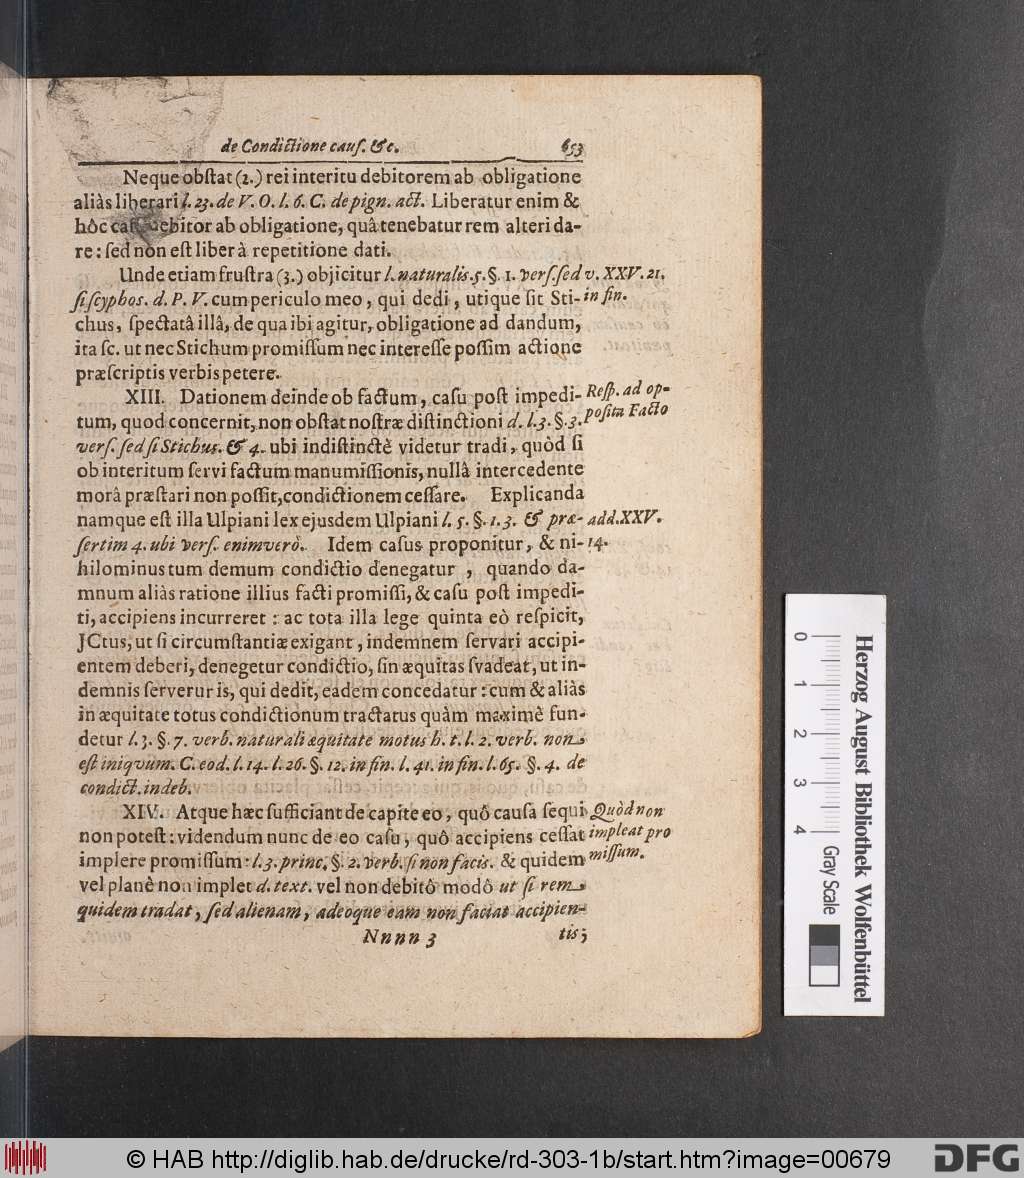 de Condictione cauſ. &c. 653
Neque obſtat (2.) rei interitu debitorem ab obligatione
aliàs liberari l. 23. de V. O. l. 6. C. de pign. act. Liberatur enim &
hôc caſ debitor ab obligatione, quâ tenebatur rem alteri da-
re: ſed non eſt liber à repetitione dati.
Unde etiam fruſtra (3.) objicitur l. naturalis. 5. §. 1. verſ. ſed
v. XXV. 21.
in fin.
ſi ſcyphos. d. P. V. cum periculo meo, qui dedi, utique ſit Sti-
chus, ſpectatâ illâ, de qua ibi agitur, obligatione ad dandum,
ita ſc. ut nec Stichum promiſſum nec intereſſe poſſim actione
præſcriptis verbis petere.
XIII. Dationem deinde ob factum, caſu poſt impedi-
Reſp. ad op-
poſita Facto
tum, quod concernit, non obſtat noſtræ diſtinctioni d. l. 3. §. 3.
verſ. ſed ſi Stichus. & 4. ubi indiſtinctè videtur tradi, quòd ſi
ob interitum ſervi factum manumiſſionis, nullâ intercedente
morâ præſtari non poſſit, condictionem ceſſare. Explicanda
namque eſt illa Ulpiani lex ejusdem Ulpiani l. 5. §. 1. 3. & præ-
add. XXV.
14.
ſertim 4. ubi verſ. enimverò. Idem caſus proponitur, & ni-
hilominus tum demum condictio denegatur, quando da-
mnum aliàs ratione illius facti promiſſi, & caſu poſt impedi-
ti, accipiens incurreret: ac tota illa lege quinta eò reſpicit,
JCtus, ut ſi circumſtantiæ exigant, indemnem ſervari accipi-
entem deberi, denegetur condictio, ſin æquitas ſvadeat, ut in-
demnis ſerverur is, qui dedit, eadem concedatur: cum & aliàs
in æquitate totus condictionum tractatus quàm maximè fun-
detur l. 3. §. 7. verb. naturali æquitate motus h. t. l. 2. verb. non
eſt iniqvum. C. eod. l. 14. l. 26. §. 12. in fin. l. 41. in fin. l. 65. §. 4. de
condict. indeb.
XIV. Atque hæc ſufficiant de capite eo, quô cauſa ſequi
Quòd non
impleat pro
miſſum.
non poteſt: videndum nunc de eo caſu, quô accipiens ceſſat
implere promiſſum: l. 3. princ. §. 2. verb. ſi non facis. & quidem
vel planè non implet d. text. vel non debitô modô ut ſi rem
quidem tradat, ſed alienam, adeoque eam non faciat accipien-
Nnnn 3 tis;
Herzog August Bibliothek Wolfenbüttel
0 1 2 3 4 Gray Scale
© HAB http://diglib.hab.de/drucke/rd-303-1b/start.htm?image=00679
DFG